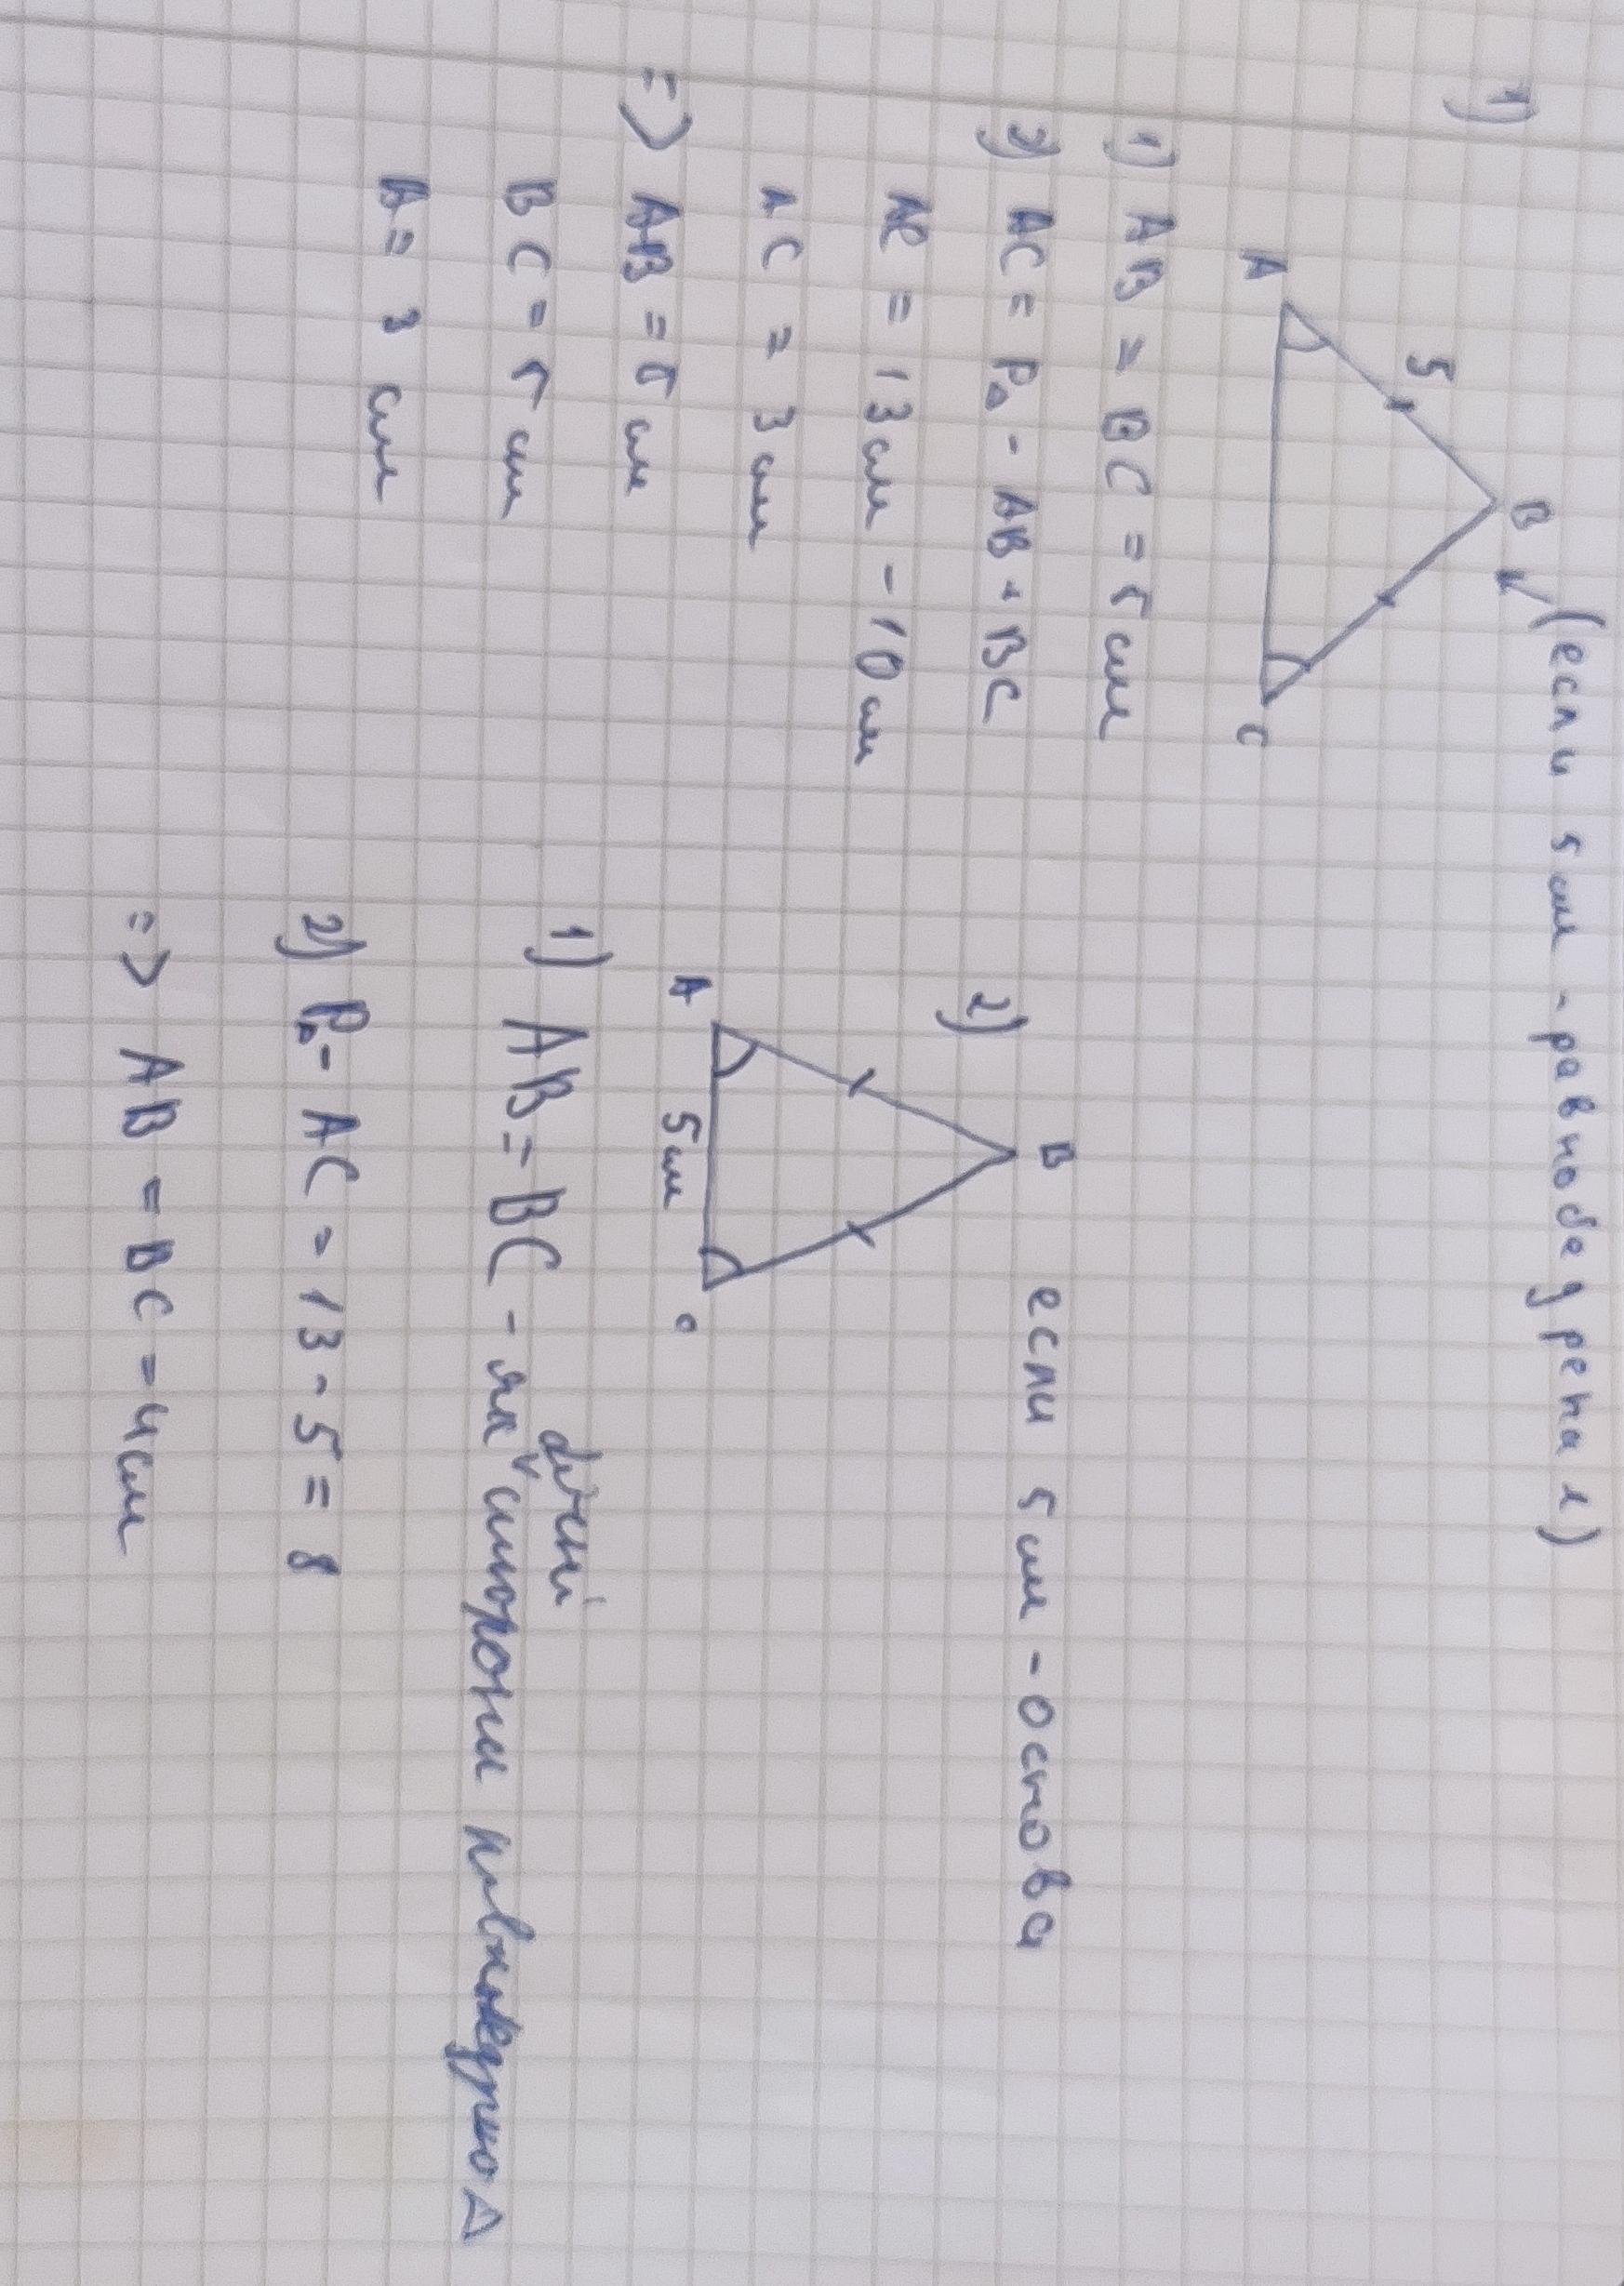 1)
B (если 5 см - равнобедреная)
5
A C
1) AB = BC = 5 см
2) AC = P△ - AB + BC
AC = 13 см - 10 см
AC = 3 см
=> AB = 5 см
BC = 5 см
A = 3 см
2) B если 5 см - основа
A 5 см C
1) AB = BC - як бічні сторони
2) P△ - AC = 13 - 5 = 8
=> AB = BC = 4 см